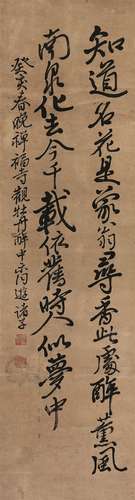 知道名花是翁尋香此處醉薰風
南泉化去今千載依舊時人似夢中
癸亥春晚禪福寺觀牡丹醉中示同遊諸子